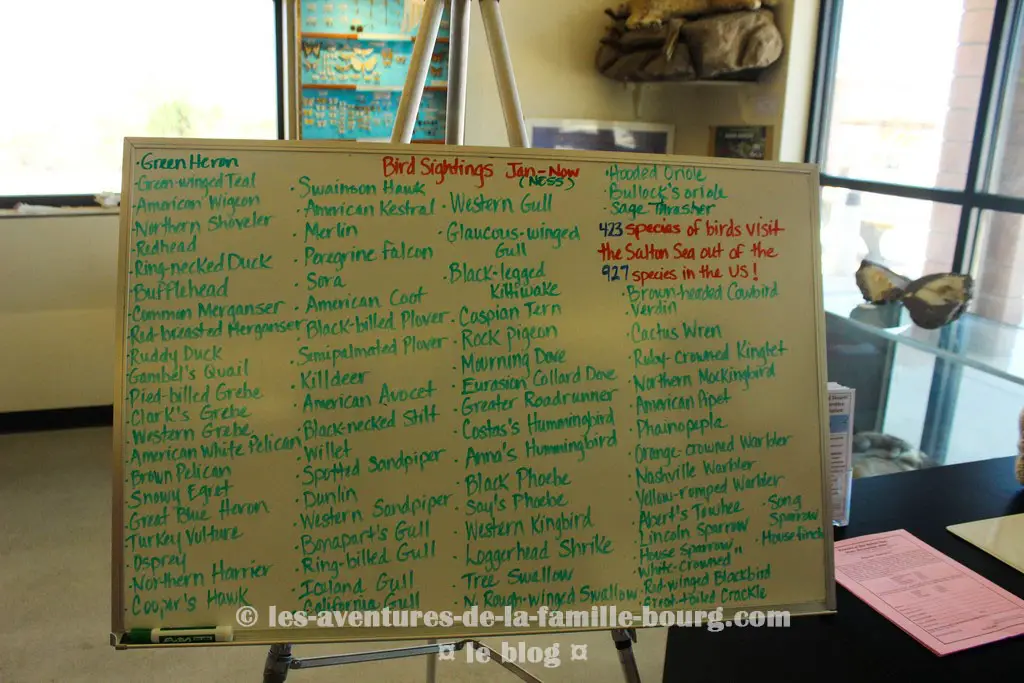 Bird Sightings Jan-Now
(NESS)
· Green Heron
· Green-winged Teal
· American Wigeon
· Northern Shoveler
· Redhead
· Ring-necked Duck
· Bufflehead
· Common Merganser
· Red-breasted Merganser
· Ruddy Duck
· Gambel's Quail
· Pied-billed Grebe
· Clark's Grebe
· Western Grebe
· American White Pelican
· Brown Pelican
· Snowy Egret
· Great Blue Heron
· Turkey Vulture
· Osprey
· Northern Harrier
· Cooper's Hawk
· Swainson Hawk
· American Kestral
· Merlin
· Peregrine Falcon
· Sora
· American Coot
· Black-billed Plover
· Semipalmated Plover
· Killdeer
· American Avocet
· Black-necked Stilt
· Willet
· Spotted Sandpiper
· Dunlin
· Western Sandpiper
· Bonapart's Gull
· Ring-billed Gull
· Iceland Gull
· California Gull
· Western Gull
· Glaucous-winged
Gull
· Black-legged
Kittiwake
· Caspian Tern
· Rock Pigeon
· Mourning Dove
· Eurasion Collard Dove
· Greater Roadrunner
· Costas's Hummingbird
· Anna's Hummingbird
· Black Phoebe
· Say's Phoebe
· Western Kingbird
· Loggerhead Shrike
· Tree Swallow
· N. Rough-winged Swallow
· Hooded Oriole
· Bullock's oriole
· Sage Thrasher
423 species of birds visit
the Salton Sea out of the
927 species in the US!
· Brown-headed Cowbird
· Verdin
· Cactus Wren
· Ruby-crowned Kinglet
· Northern Mockingbird
· American Pipet
· Phainopepla
· Orange-crowned Warbler
· Nashville Warbler
· Yellow-romped Warbler
· Albert's Towhee
· Lincoln Sparrow
· House Sparrow
· White-crowned "
· Red-winged Blackbird
· Great-tailed Crackle
· Song
Sparrow
· House finch
© les-aventures-de-la-famille-bourg.com
¤ le blog ¤